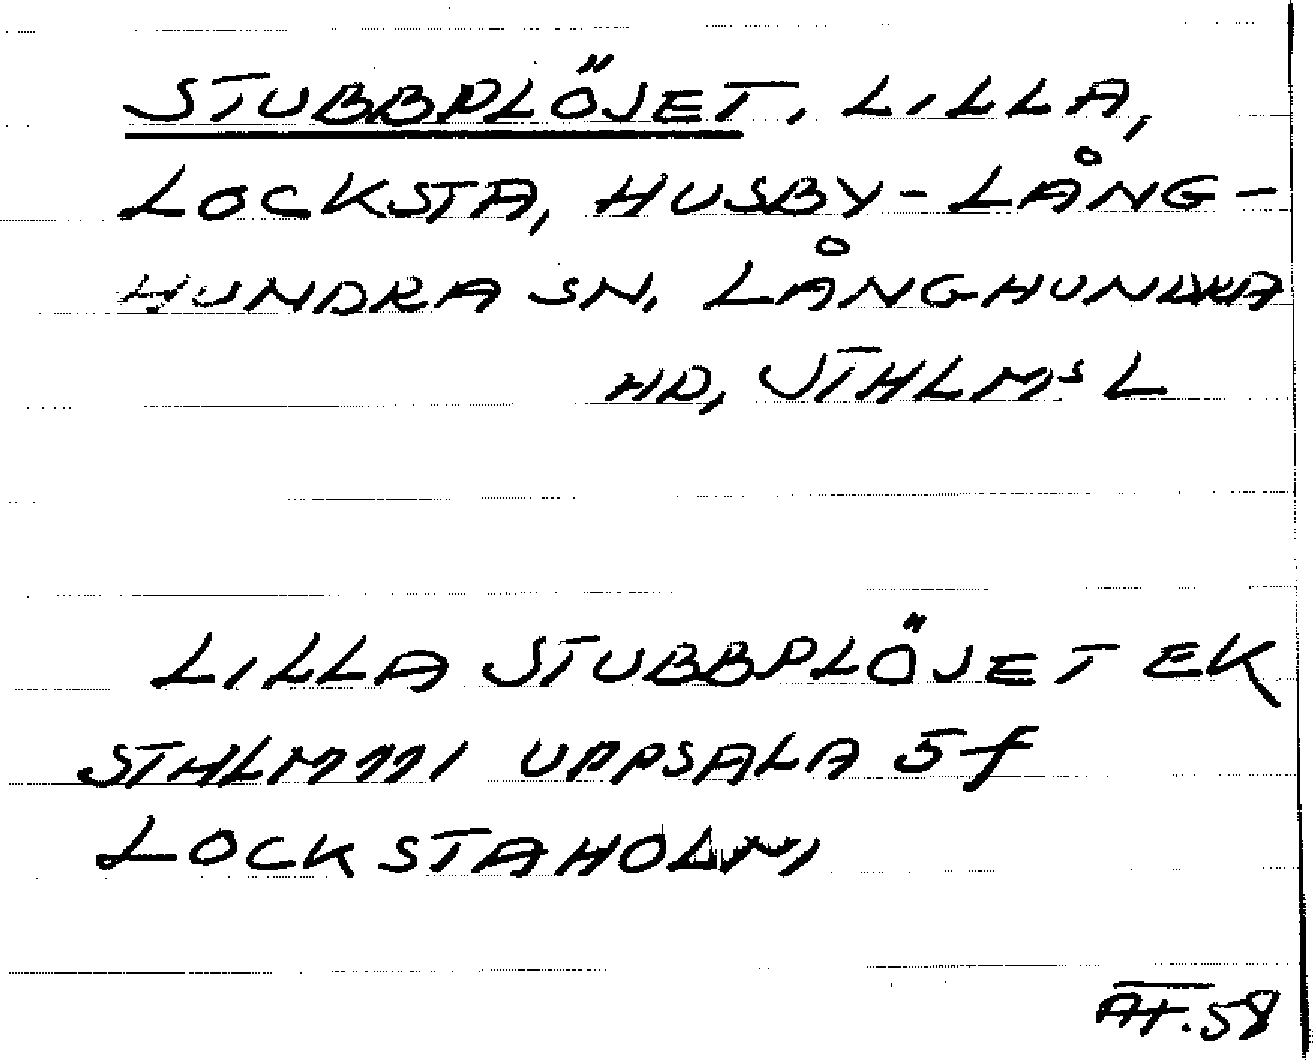 STUBBPLÖJET, LILLA,
LOCKSTA, HUSBY-LÅNG-
HUNDRA SN. LÅNGHUNDRA
HD, STHLMS L
LILLA STUBBPLÖJET EK
STHLM 111 UPPSALA 5f
LOCKSTAHOLM
AT. 58